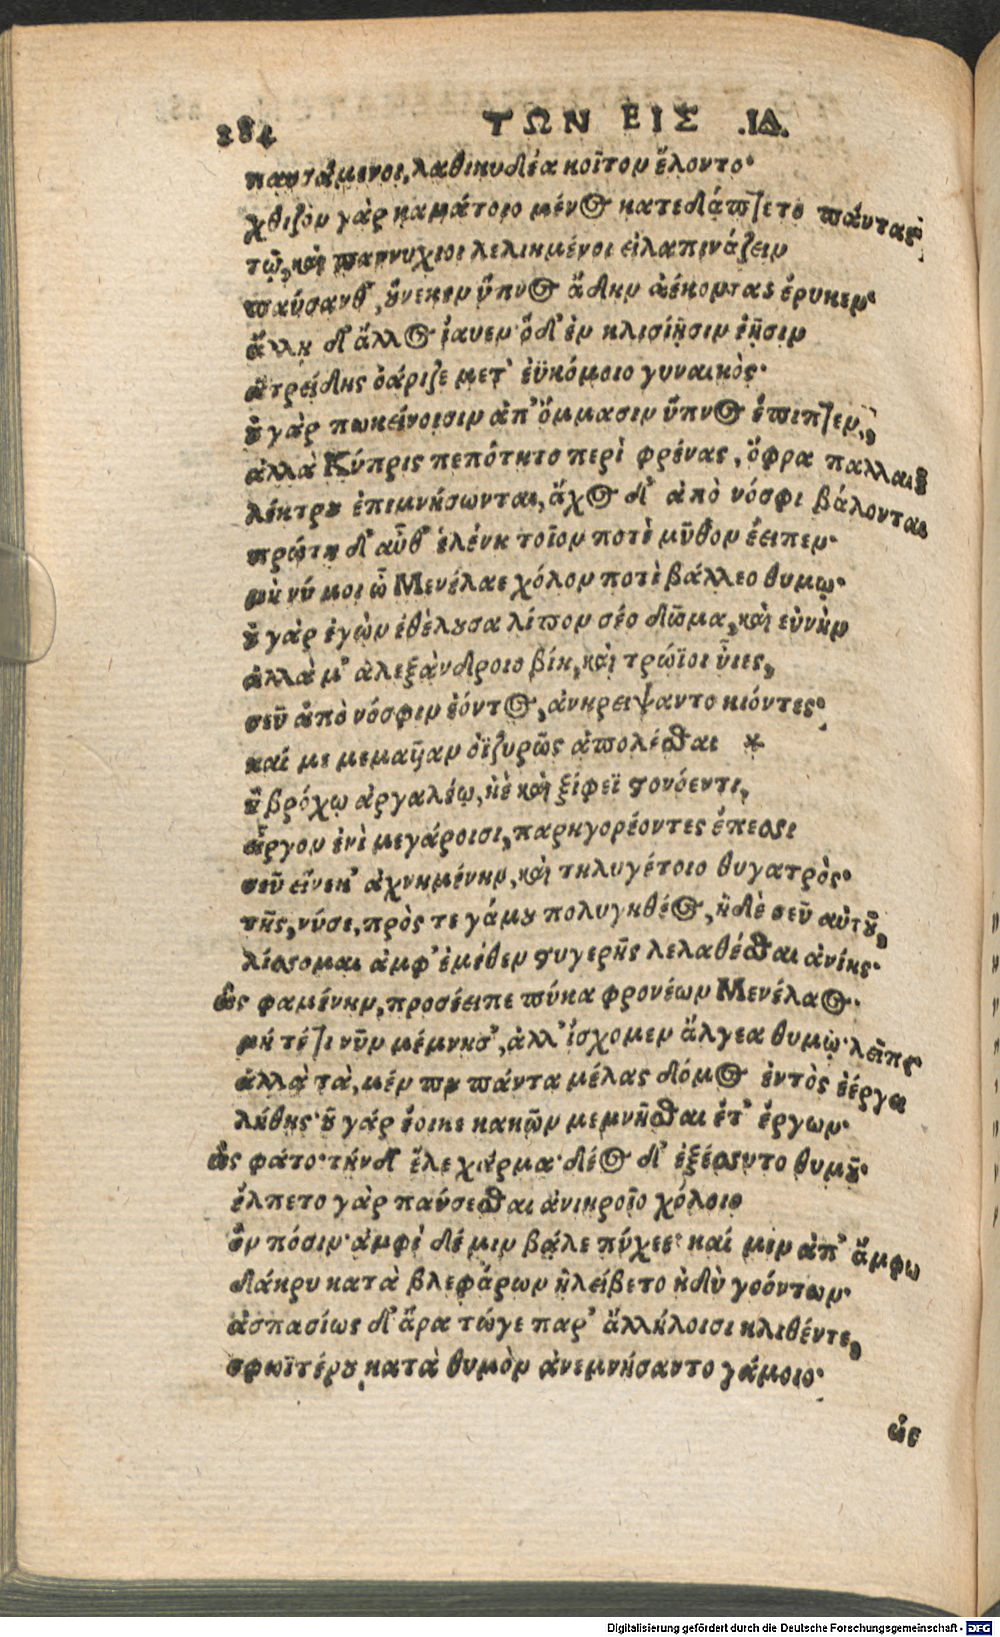 284 ΤΩΝ ΕΙΣ .ΙΔ.
παυσάμενοι, λαθικυδέα κοῖτον ἕλοντο·
χθιζὸν γὰρ καμάτοιο μένος κατεδάπτετο πάντας·
τῷ, καὶ παννυχιοι λελιημένοι εἰλαπινάζειν
παύσανθ', οὕνεκεν ὕπνος ἄδην ἀέκοντας ἔρυκεν·
ἄλλου δ' ἄλλος ἴαυεν· ὅδ' ἐν κλισίῃσιν ἑῇσιν
ἀτρείδης ὀάριζε μετ' ἐϋκόμοιο γυναικὸς·
οὐ γὰρ πωκείνοισιν ἀπ' ὄμμασιν ὕπνος ἔπιπτεν,
ἀλλὰ Κύπρις πεπότητο περὶ φρένας, ὄφρα παλλαιοῦ
λέκτρου ἐπιμνήσωνται, ἄχος δ' ἀπὸ νόσφι βάλονται
πρώτη δ' αὖθ' ἑλένη τοῖον ποτὲ μῦθον ἔειπεν·
μή νύ μοι ὦ Μενέλαε χόλον ποτὲ βάλλεο θυμῳ·
οὐ γὰρ ἐγὼν ἐθέλουσα λίπον σέο δῶμα, καὶ εὐνὴν
ἀλλὰ μ' ἀλεξάνδροιο βίη, καὶ τρώϊοι ὗιες,
σεῦ ἀπὸ νόσφιν ἐόντος, ἀνηρείψαντο κιόντες·
καί με μεμαῗαν ὀϊζυρῶς ἀπολέσθαι *
ἢ βρόχῳ ἀργαλέῳ, ἠὲ καὶ ξίφεϊ στονόεντι,
εἶργον ἐνὶ μεγάροισι, παρηγορέοντες ἔπεσσι
σεῦ εἵνεκ' ἀχνημένην, καὶ τηλυγέτοιο θυγατρὸς·
τῆς, νύσε, πρὸς τε γάμου πολυγηθέος, ἠδὲ σεῦ αὐτοῦ,
λίσσομαι ἀμφ' ἐμέθεν στυγερῆς λελαθέσθαι ἀνίης·
ὣς φαμένην, προσέειπε πύκα φρονέων Μενέλαος·
μή τέτι νῦν μέμνησ', ἀλλ' ἴσχομεν ἄλγεα θυμῷ·
ἀλλὰ τὰ, μέν που πάντα μέλας δόμος ἐντὸς ἐέργει
λήθης· οὐ γάρ ἔοικε κακῶν μεμνῆσθαι ἔτ' ἔργων·
ὣς φάτο· τήνδ' ἕλε χάρμα· δέος δ' ἐξέσσυτο θυμοῦ·
ἔλπετο γὰρ παύσεσθαι ἀνιηροῖο χόλοιο
ὃν πόσιν· ἀμφὶ δέ μιν βάλε πήχεε· καί μιν ἀπ' ἄμφω
δάκρυ κατὰ βλεφάρων ἠλείβετο ἡδὺ γοόντων·
ἀσπασίως δ' ἄρα τώγε παρ' ἄλλήλοισι κλιθέντε,
σφωϊτέρου κατὰ θυμὸν ἀνεμνήσαντο γάμοιο·
ὡς
Digitalisierung gefördert durch die Deutsche Forschungsgemeinschaft - DFG